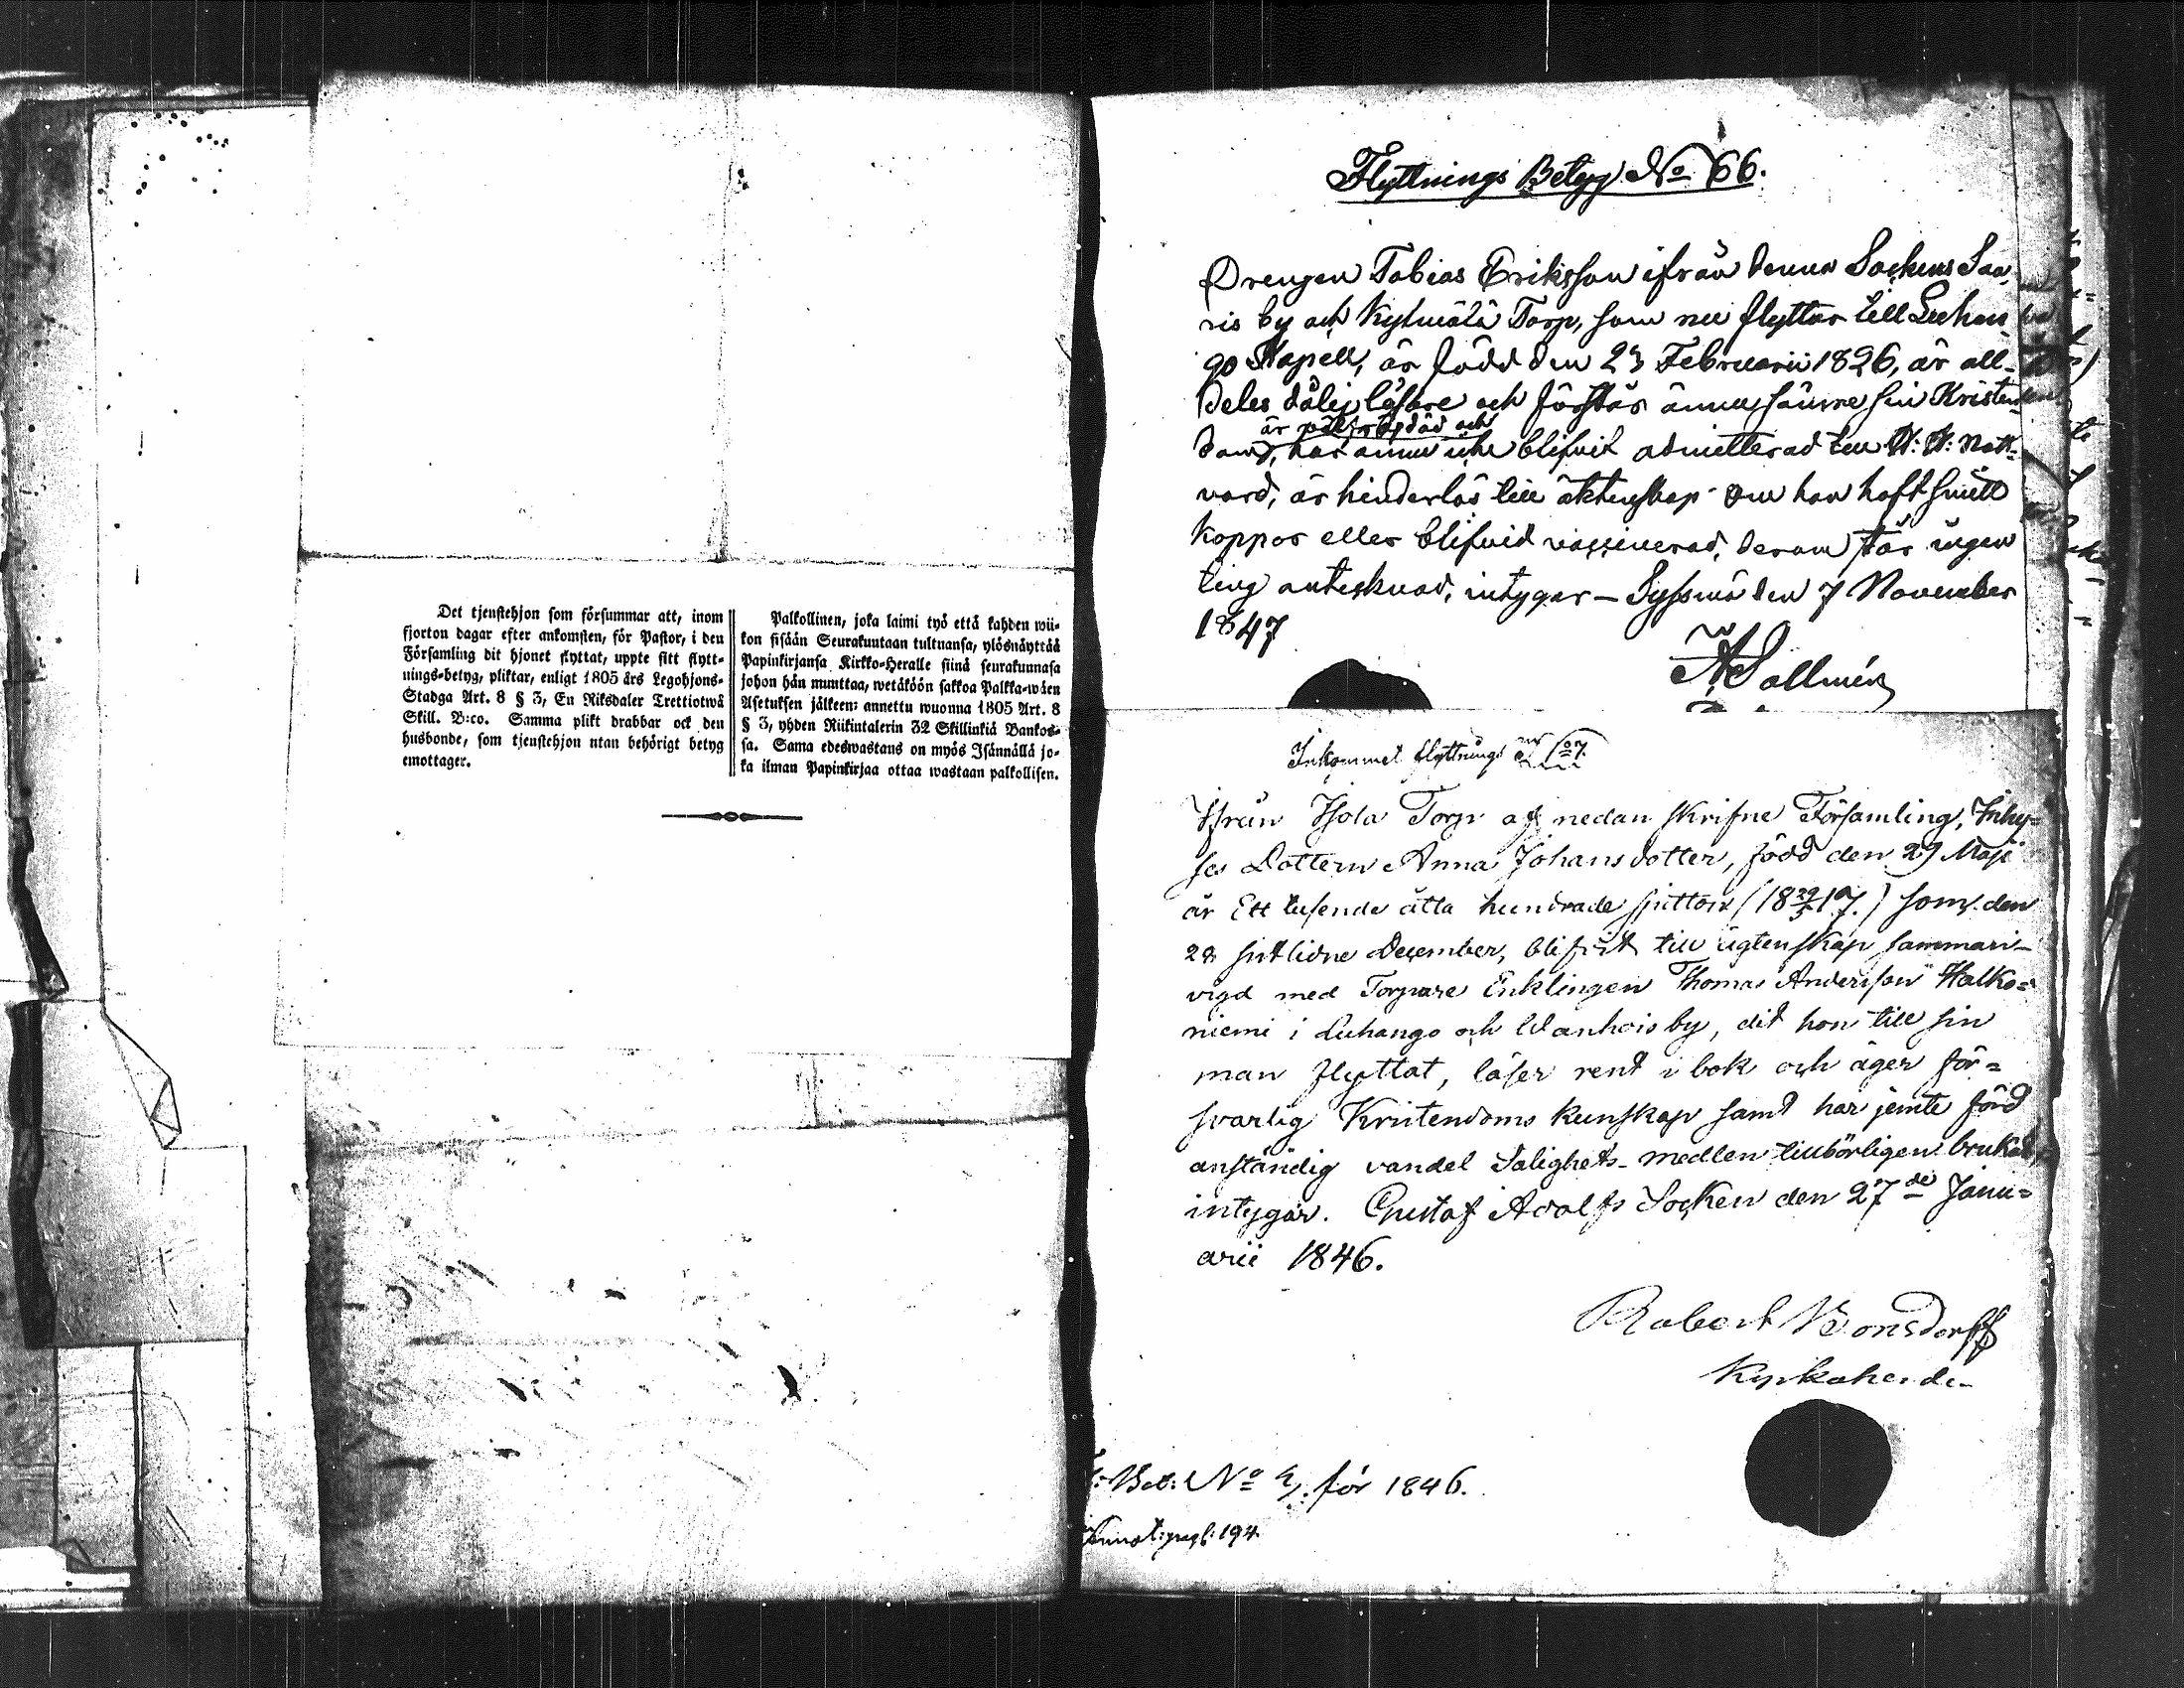 Det tjenstehjon som försummar att, inom
fjorton dagar efter ankomsten, för Pastor, i den
Församling dit hjonet flyttat, uppte sitt flytt-
nings-betyg, pliktar, enligt 1805 års Legohjons-
Stadga Art. 8 § 3, En Riksdaler Trettiotwå
Skill. B:co. Samma plikt drabbar ock den
husbonde, som tjenstehjon utan behörigt betyg
emottager.
Palkollinen, joka laimi työ että kahden wii-
kon sisään Seurakuntaan tultuansa, ylösnäyttää
Papinkirjansa Kirkko-Heralle siinä seurakunnasa
johon hän muuttaa, wetäköön sakkoa Palkka-wäen
Asetuksen jälkeen: annettu wuonna 1805 Art. 8
§ 3, yhden Riikintalerin 32 Skillinkiä Bankos-
sa. Sama edeswastaus on myös Isännällä jo-
ka ilman Papinkirjaa ottaa wastaan palkollisen.
Flyttnings Betyg No 66.
Drengen Tobias Eriksson ifrån denna Sockens Saa-
ris by och Kylmälä Torp, som nu flyttar till Luhan-
go Kapell, är född den 23 Februarii 1826, är all-
deles dålig läsare och förstår ännu sämre sin Kristen-
är och
dom, har ännu icke blifvit admitterad till H: H: Natt-
vard, är hinderlös till äktenskap om han haft
koppor eller blifvid vaccinerad, derom står ingen
ting anteknad, intygar – Sysmä den 7 November
1847
Inkommet flyttnings
Ifrån Isola Torp af nedan skrifne Församling, Inhy-
ses Dottern Anna Johansdotter, född den 29 Maji
år Ett tusende åtta hundrade sjutton (18 29/5 17.) som den
28 sistlidne December, blifvit till ägtenskap samman-
vigd med Torpare Enklingen Thomas Andersson Halko-
niemi i Luhango och Wanhois by, dit hon till sin
man flyttat, läser rent i bok och äger för-
svarlig Kristendoms kunskap samt har jemte förd
anständig vandel Salighets-medlen tillbörligen brukat,
intygar. Gustaf Adolfs Socken den 27de Janu-
arii 1846.
Robert Bonsdorff
Kyrkoherde
Bet: No för 1846.
194.